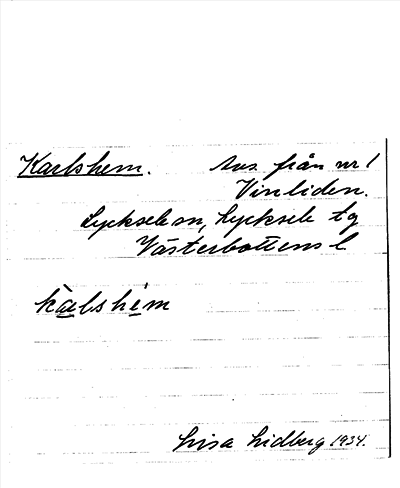 Karlshem. Avs. från nr 1
Vinliden.
Lycksele sn, Lycksele tg
Västerbottens l
kàrlshèm
Lisa Lidberg 1934.